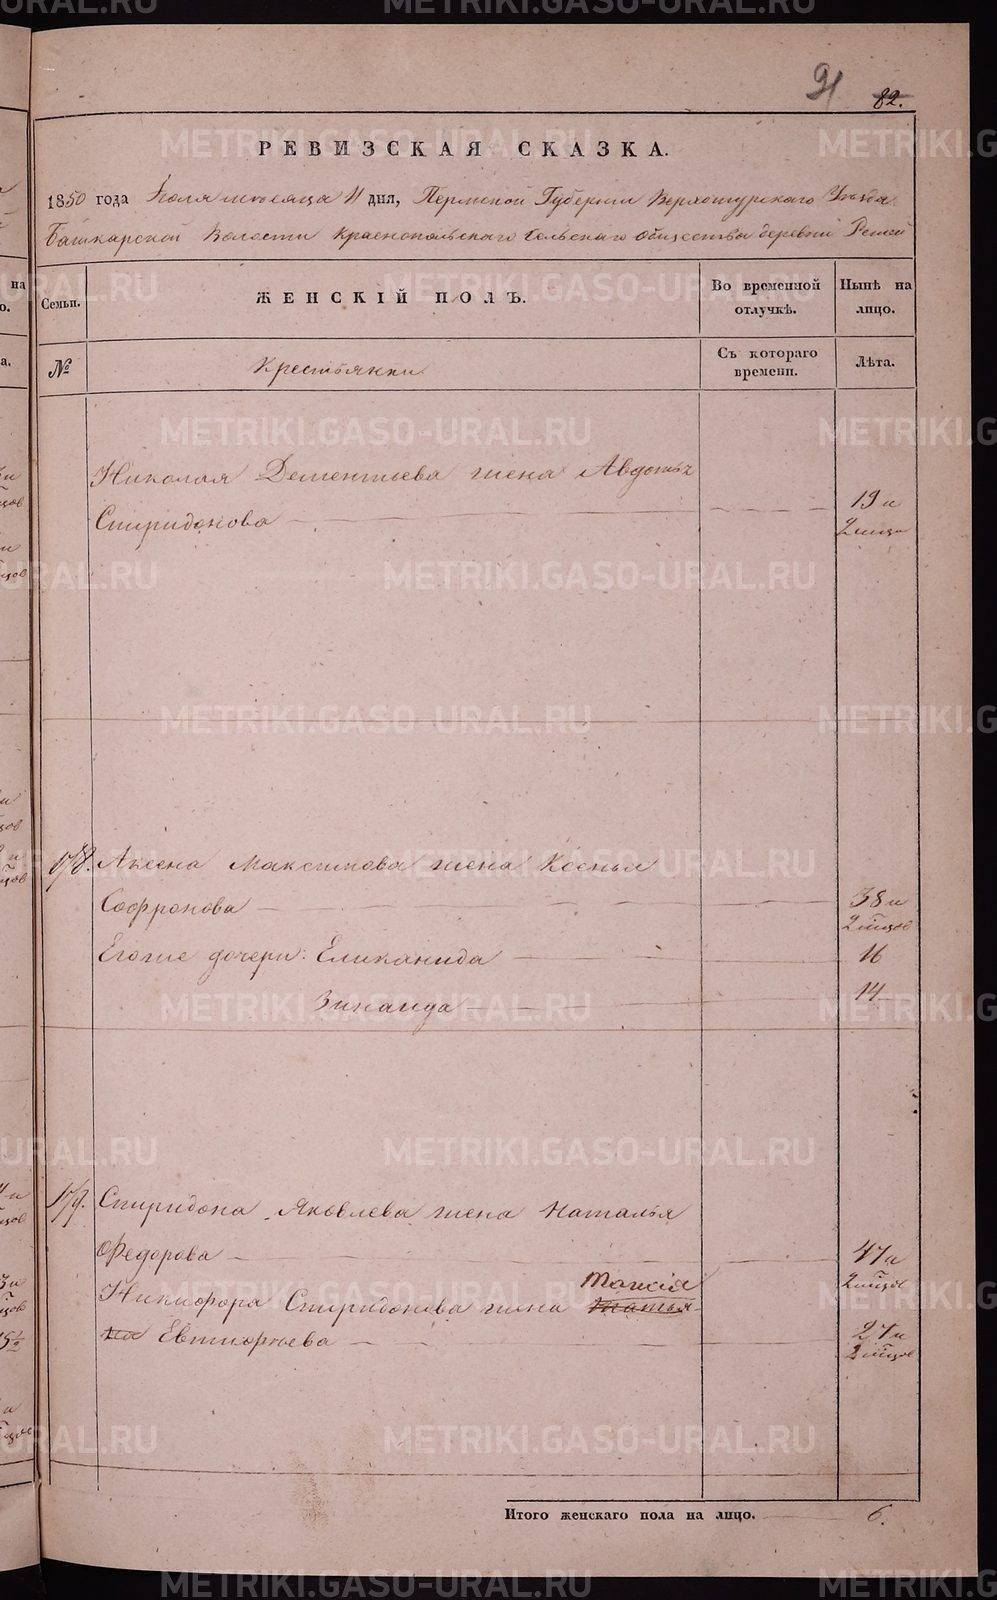 METRIKI.GASO-URAL.RU
91
82.
РЕВИЗСКАЯ СКАЗКА.
1850 года Июля месяца 11 дня, Пермской Губернии Верхотурского Уезда
Башкарской Волости Краснопольского Сельского Общества деревни
Семьи.
ЖЕНСКІЙ ПОЛЪ.
Во временной отлучкѣ.
Нынѣ на лицо.
№
Крестьянки
Съ котораго времени.
Лѣта.
Николая Дементьева жена Авдотья
Спиридонова 19 и
2 мѣця
178. Аксена Максимова жена Ксенья
Софронова 38 и
2 мѣцов
Егоже дочери: Еликанида 16
Зинаида 14
179. Спиридона Яковлева жена Наталья
Федорова 47 и
2 мѣцов
Таисія
Никифора Спиридонова жена Татья
на Евтифьева 27 и
2 мѣцов
Итого женскаго пола на лицо. 6.